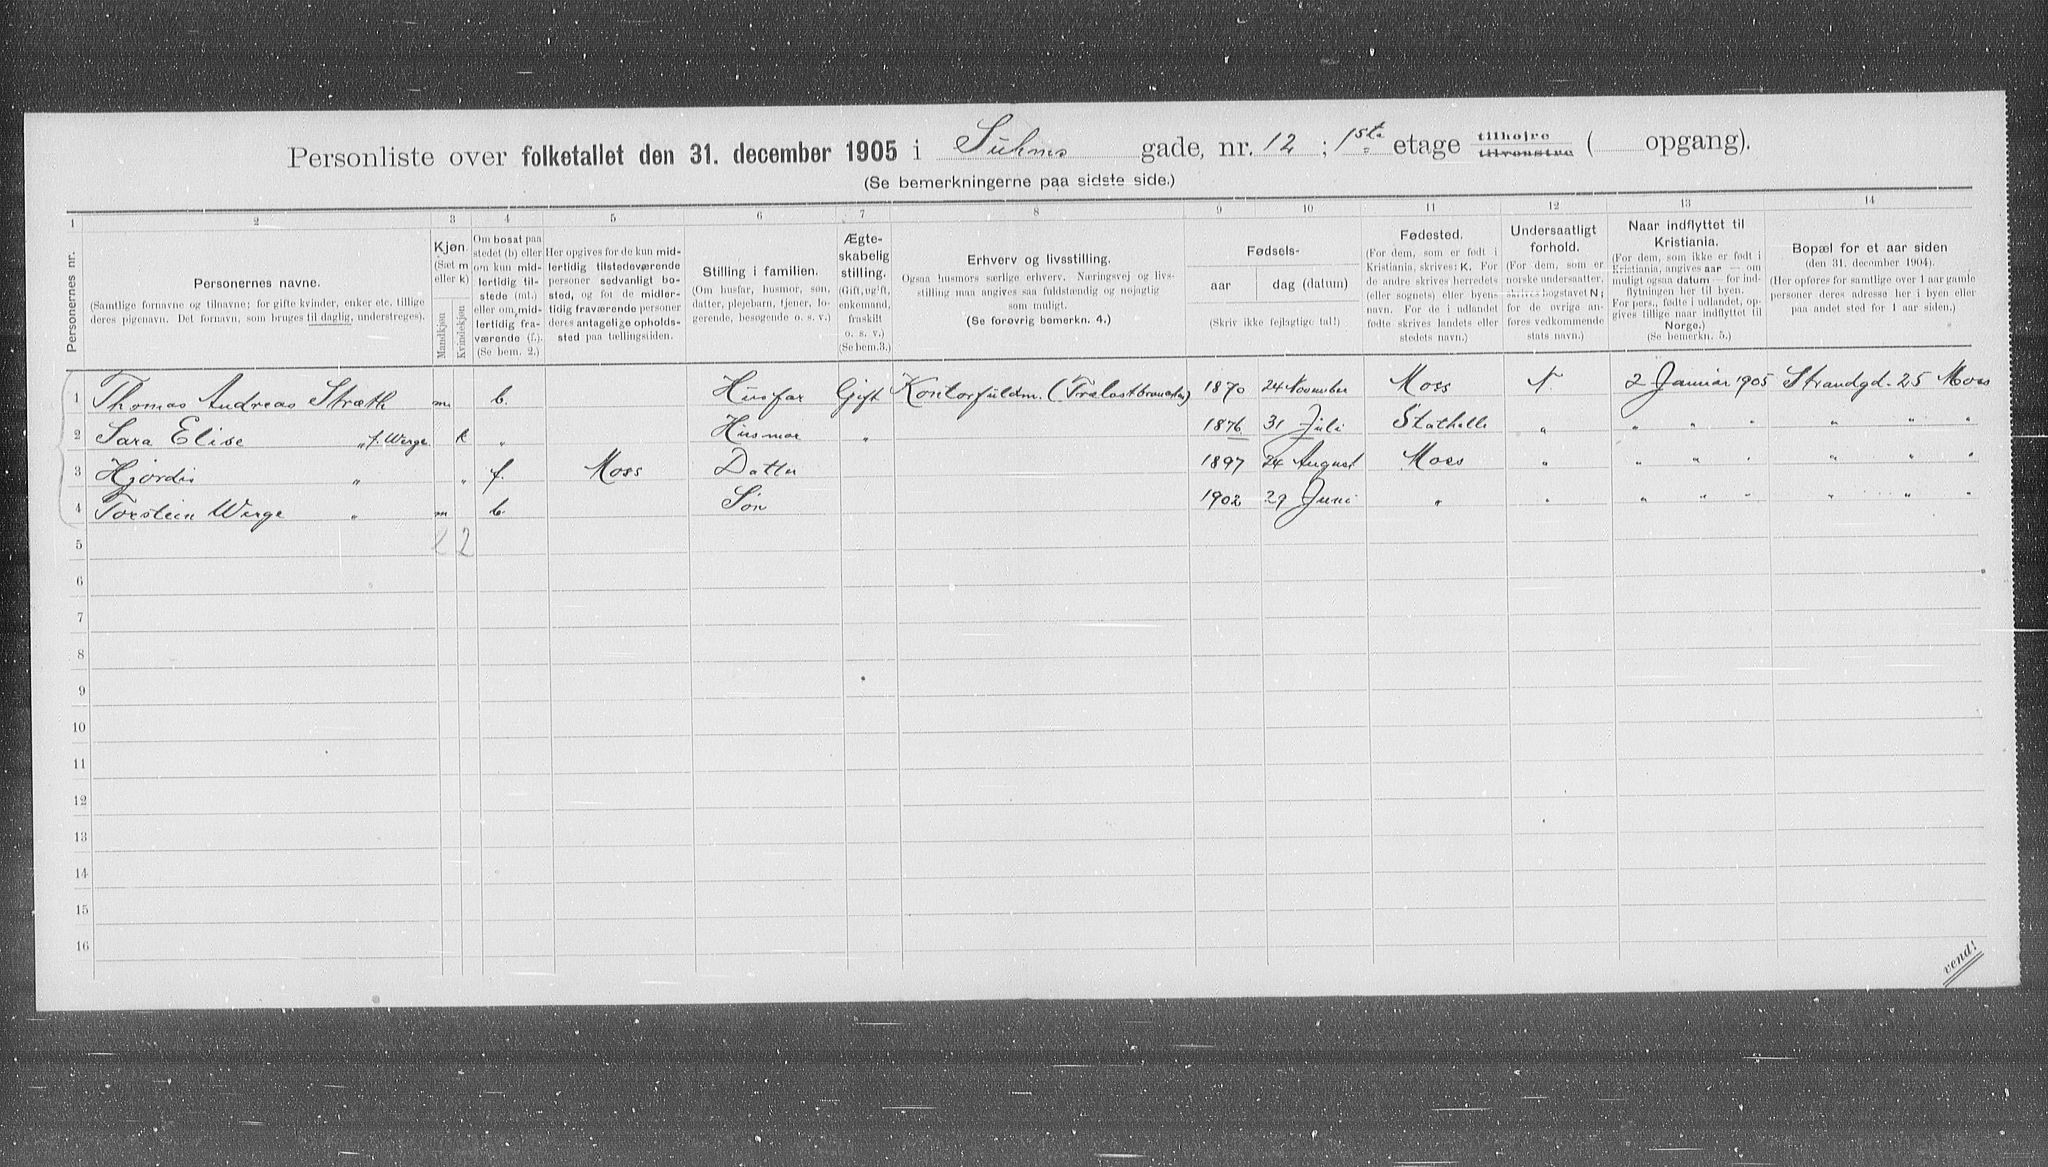 Personliste over folketallet den 31. december 1905 i Suhms gade, nr. 12 ; 1ste etage tilhøjre tilvenstre ( opgang).
(Se bemerkningerne paa sidste side.)
1 2 3 4 5 6 7 8 9 10 11 12 13 14
Personernes nr.
Personernes navne.
(Samtlige fornavne og tilnavne; for gifte kvinder, enker etc. tillige
deres pigenavn. Det fornavn, som bruges til daglig, understreges).
Kjøn.
(Sæt m
eller k)
Mandkjøn
Kvindekjøn
Om bosat paa
stedet (b) eller
om kun mid-
lertidig til-
stede (mt.)
eller om mid-
lertidig fra-
værende (f.).
(Se bem. 2.)
Her opgives for de kun mid-
lertidig tilstedeværende
personer sedvanligt bo-
sted, og for de midler-
tidig fraværende personer
deres antagelige opholds-
sted paa tællingstiden.
Stilling i familien.
(Om husfar, husmor, søn,
datter, plejebarn, tjener, lo-
gerende, besøgende o. s. v.)
Ægte-
skabelig
stilling.
(Gift, ugift,
enkemand,
fraskilt
o. s. v.)
(Se bem.3.)
Erhverv og livsstilling.
Ogsaa husmors særlige erhverv. Næringsvej og livs-
stilling maa angives saa fuldstændig og nøjagtig
som muligt.
(Se forøvrig bemerkn. 4.)
Fødsels-
aar dag (datum)
(Skriv ikke fejlagtige tal!)
Fødested.
(For dem, som er født i
Kristiania, skrives: K. For
de andre skrives herredets
(eller sognets) eller byens
navn. For de i udlandet
fødte skrives landets eller
stedets navn.)
Undersaatligt
forhold.
(For dem, som er
norske undersaatter,
skrives bogstavet N;
for de øvrige an-
føres vedkommende
stats navn.)
Naar indflyttet til
Kristiania.
(For dem, som ikke er født i
Kristiania, angives aar — om
muligt ogsaa datum — for ind-
flytningen her til byen.
For pers., fødte i udlandet, op-
gives tillige naar indflyttet til
Norge.)
(Se bemerkn. 5.)
Bopæl for et aar siden
(den 31. december 1904).
(Her opføres for samtlige over 1 aar gamle
personer deres adresse her i byen eller
paa andet sted for 1 aar siden.)
1 Thomas Andreas Stræth m b. Husfar Gift Kontorfuldm. (Trælastbranchen) 1870 24 November Moss N 2 Januar 1905 Strandgd. 25 Moss
2 Sara Elise " f. Werge k " Husmor " 1876 31 Juli Stathelle " " " " " " "
3 Hjördis " " f. Moss Datter 1897 24 August Moss " " " " " " "
4 Torstein Werge " m b. Søn 1902 29 Juni " " " " " " " "
5 2 2
6
7
8
9
10
11
12
13
14
15
16
vend!